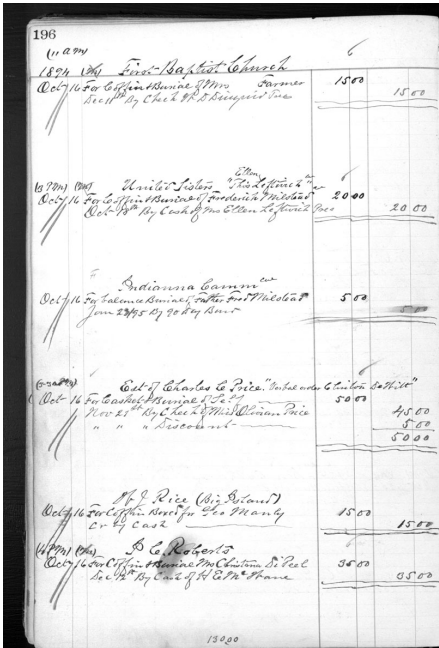 196
(11 AM)
1894 First Baptist Church
Oct 16 For Coffin & Burial of Mrs Farmer 15 00
Dec 11th By Check of R D 15 00
Ellen
United Sisters "This Leftwich"
Oct 16 For Coffin & Burial of Frederick Milstead 20 00
Oct By Cash of Mrs Ellen Leftwich Pres 20 00
Indianna Camm
Oct 16 For balance Burial of Father Fred Milstead 5 00
Jany 23/95 By 90 day 5 00
Est of Charles C Price "Verbal order Clinton DeWitt"
Oct 16 For Casket & Burial of Self 50 00
Nov 21st By Check of Mrs Price 45 00
" " " Discount 5 00
50 00
W J Rice (Big Island)
Oct 16 For Coffin Boxed for Geo Manly 15 00
Cr By Cash 15 00
P C Roberts
Oct 16 For Coffin & Burial Mrs Christina 35 00
Dec 12th By Cash of H E 35 00
130 00